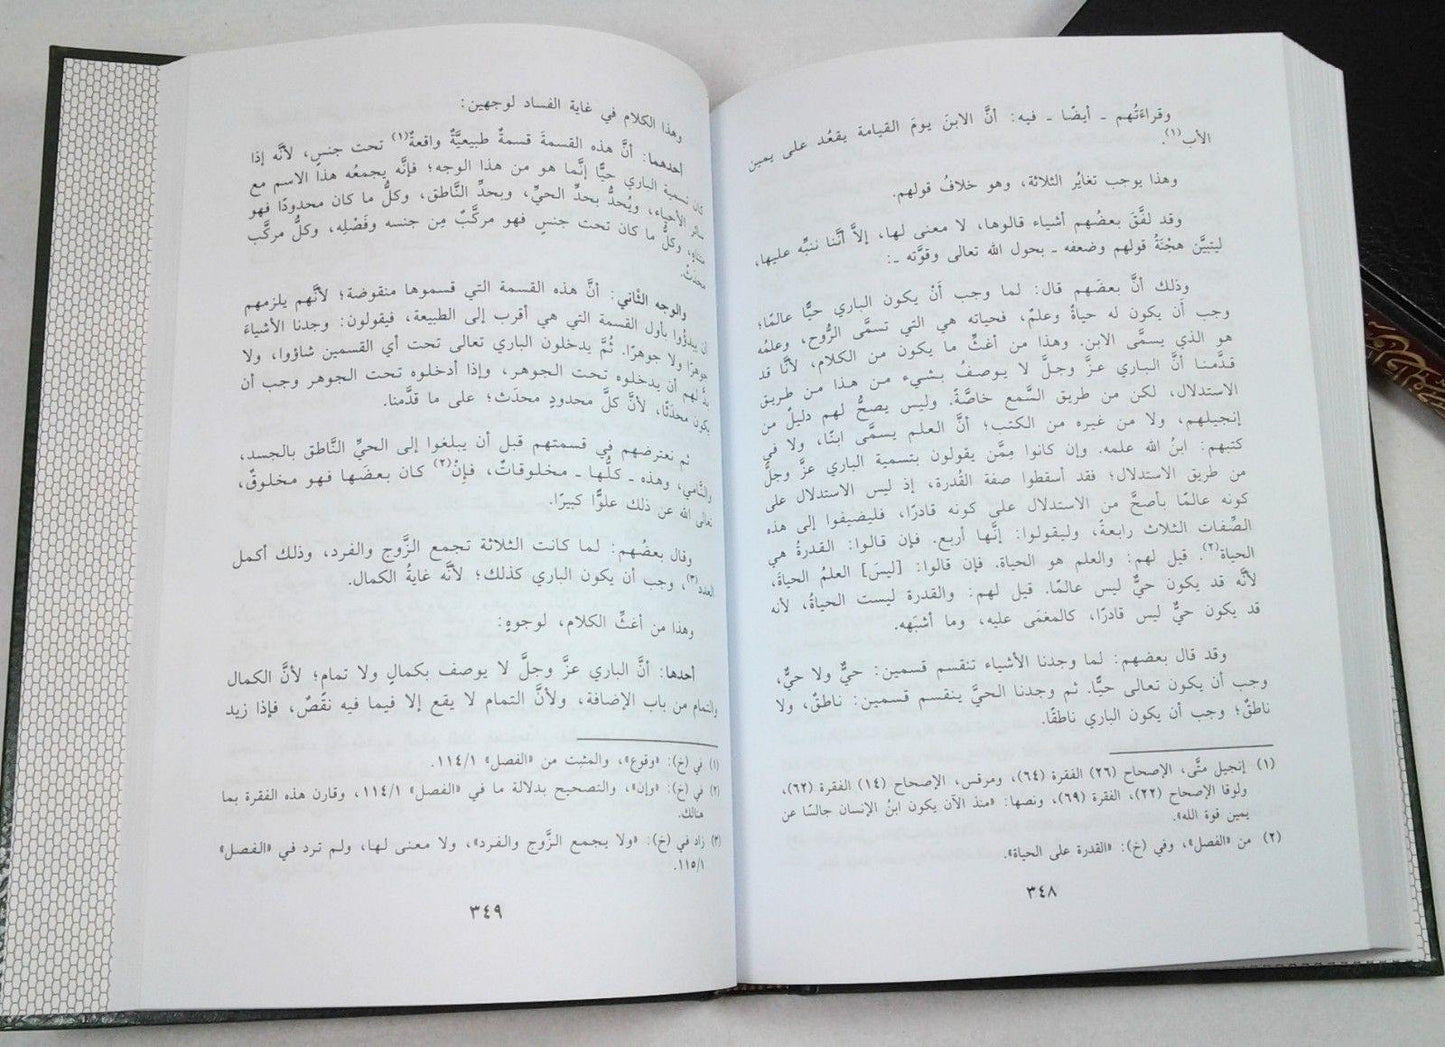 وقراءَتُهم ـ أيضًا ـ فيه: أنَّ الابنَ يومَ القيامة يقعُد على يمين
الأب(١).
وهذا يوجب تغايُر الثلاثة، وهو خلافُ قولهم.
وقد لفَّقَ بعضُهم أشياء قالوها، لا معنى لها، إلاَّ أنَّنا ننبِّه عليها،
ليتبيَّن هجْنَةُ قولهم وضعفه ـ بحول الله تعالى وقوَّته ـ:
وذلك أنَّ بعضَهم قال: لما وجب أَنْ يكون الباري حيًّا عالمًا؛
وجب أَن يكون له حياةٌ وعلمٌ، فحياته هي التي تسمَّى الرُّوح، وعلمُه
هو الذي يسمَّى الابن. وهذا من أغثِّ ما يكون من الكلام، لأنَّا قد
قدَّمنا أنَّ الباري عزَّ وجلَّ لا يوصفُ بشيء من هذا من طريق
الاستدلال، لكن من طريق السَّمع خاصَّةً. وليس يصحُّ لهم دليلٌ من
إنجيلهم، ولا من غيره من الكتب؛ أنَّ العلم يسمَّى ابنًا، ولا في
كتبهم: ابنُ الله علمه. وإن كانوا ممَّن يقولون بتسمية الباري عزَّ وجلَّ
من طريق الاستدلال؛ فقد أسقطوا صفة القُدرة، إذ ليس الاستدلال على
كونه عالمًا بأصحَّ من الاستدلال على كونه قادرًا، فليضيفوا إلى هذه
الصِّفات الثلاث رابعةً، وليقولوا: إنَّها أربع. فإن قالوا: القدرةُ هي
الحياة(٢). قيل لهم: والعلم هو الحياة. فإن قالوا: [ليسَ] العلمُ الحياةَ،
لأنَّه قد يكون حيٌّ ليس عالمًا. قيل لهم: والقدرة ليست الحياةُ، لأنه
قد يكون حيٌّ ليس قادرًا، كالمغمَى عليه، وما أشبَهه.
وقد قال بعضهم: لما وجدنا الأشياء تنقسم قسمين: حيٌّ ولا حيٌّ،
وجب أن يكون تعالى حيًّا. ثم وجدنا الحيَّ ينقسم قسمين: ناطقٌ، ولا
ناطقٌ؛ وجب أن يكون الباري ناطقًا.
(١) إنجيل متَّى، الإصحاح (٢٦) الفقرة (٦٤)، ومرقس، الإصحاح (١٤) الفقرة (٦٢)،
ولوقا الإصحاح (٢٢)، الفقرة (٦٩)، ونصها: «منذ الآن يكون ابنُ الإنسان جالسًا عن
يمين قوة الله».
(٢) من «الفصل»، وفي (خ): «القدرة على الحياة».
٣٤٨
وهذا الكلام في غاية الفساد لوجهين:
أحدهما: أنَّ هذه القسمةَ قسمةٌ طبيعيَّةٌ واقعةٌ(١) تحت جنسٍ، لأنَّه إذَا
كان تسمية الباري حيًّا إنَّما هو من هذا الوجه؛ فإنَّه يجمعُه هذا الاسم مع
سائر الأحياء، ويُحدُّ بحدِّ الحيِّ، وبحدِّ النَّاطق، وكلُّ ما كان محدودًا فهو
متناهٍ، وكلُّ ما كان تحت جنسٍ فهو مركَّبٌ مِن جنسه وفَصْلِه، وكلُّ مركَّب
محدثٌ.
والوجه الثَّاني: أنَّ هذه القسمة التي قسموها منقوضة؛ لأنَّهم يلزمهم
أن يبدؤوا بأول القسمة التي هي أقرب إلى الطبيعة، فيقولون: وجدنا الأشياءَ
جوهرًا ولا جوهرًا. ثُمَّ يدخلون الباري تعالى تحت أي القسمين شاؤوا، ولا
بدَّ لهم أن يدخلوه تحت الجوهر، وإذا أدخلوه تحت الجوهر وجب أن
يكون محدَثًا، لأنَّ كلَّ محدودٍ محدث؛ على ما قدَّمنا.
ثم نعترضهم في قسمتهم قبل أن يبلغوا إلى الحيِّ النَّاطق بالجسد،
والنَّامي، وهذه ـ كلُّها ـ مخلوقاتٌ، فإنْ(٢) كان بعضَها فهو مخلوقٌ،
تعالى الله عن ذلك علوًّا كبيرًا.
وقال بعضُهم: لما كانت الثلاثة تجمع الزَّوج والفرد، وذلك أكمل
العدد(٣)، وجب أن يكون الباري كذلك؛ لأنَّه غايةُ الكمال.
وهذا من أغثِّ الكلام، لوجوهٍ:
أحدها: أنَّ الباري عزَّ وجلَّ لا يوصف بكمالٍ ولا تمامٍ؛ لأنَّ الكمال
والتمام من باب الإضافة، ولأنَّ التمام لا يقع إلا فيما فيه نقْصٌ، فإذا زيد
(١) في (خ): «وقوع»، والمثبت من «الفصل» ١١٤/١.
(٢) في (خ): «وإن»، والتصحيح بدلالة ما في «الفصل» ١١٤/١، وقارن هذه الفقرة بما
هنالك.
(٣) زاد في (خ): «ولا يجمع الزَّوج والفرد»، ولا معنى لها، ولم ترد في «الفصل»
١١٥/١.
٣٤٩